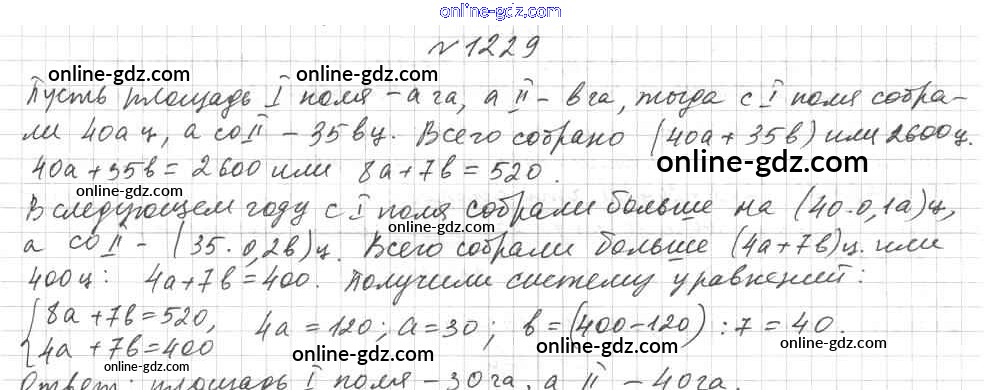 online-gdz.com
№1229
online-gdz.com online-gdz.com
Пусть площадь I поля – a га, а II – в га, тогда с I поля собра-
ли 40a ц, а со II – 35в ц. Всего собрано (40a + 35в) или 2600 ц.
online-gdz.com online-gdz.com
40a + 35в = 2600 или 8a + 7в = 520.
online-gdz.com
В следующем году с I поля собрали больше на (40·0,1a) ц,
online-gdz.com
а со II – (35·0,2в) ц. Всего собрали больше (4a + 7в) ц. или
online-gdz.com
400 ц: 4a + 7в = 400. Получили систему уравнений:
{8a + 7в = 520,
4a + 7в = 400 4a = 120; a = 30; в = (400 – 120) : 7 = 40.
online-gdz.com online-gdz.com
online-gdz.com
Ответ: площадь I поля – 30 га, а II – 40 га.